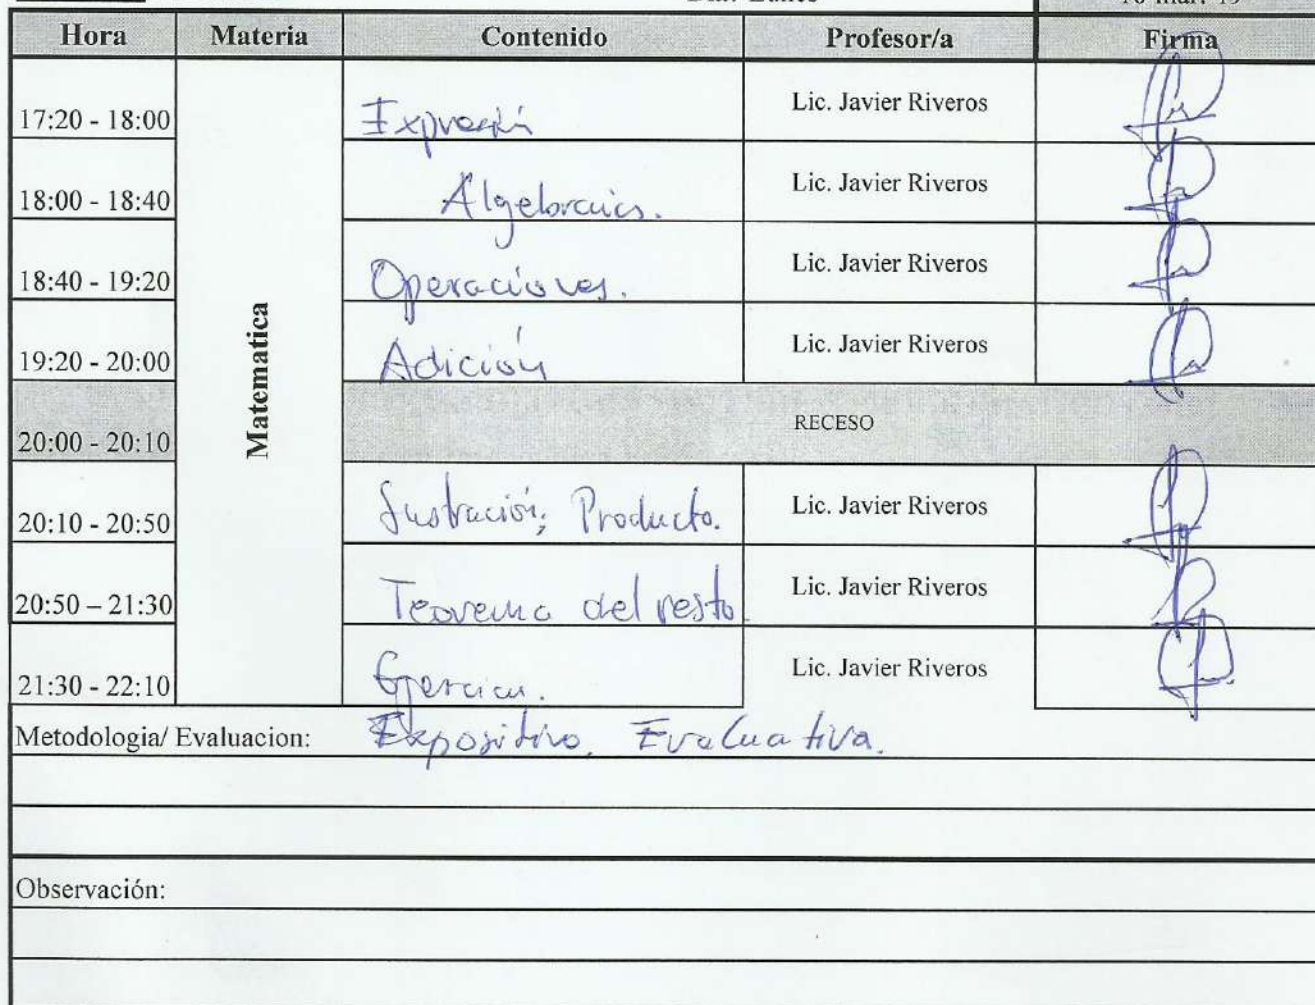 Hora Materia Contenido Profesor/a Firma
17:20 - 18:00 Expresión Lic. Javier Riveros
18:00 - 18:40 Algebraics. Lic. Javier Riveros
18:40 - 19:20 Operaciones. Lic. Javier Riveros
19:20 - 20:00 Adición Lic. Javier Riveros
Matematica
20:00 - 20:10 RECESO
20:10 - 20:50 Sustración, Producto. Lic. Javier Riveros
20:50 – 21:30 Teorema del resto Lic. Javier Riveros
21:30 - 22:10 Lic. Javier Riveros
Metodologia/ Evaluacion: Expositivo, Evaluativa.
Observación: